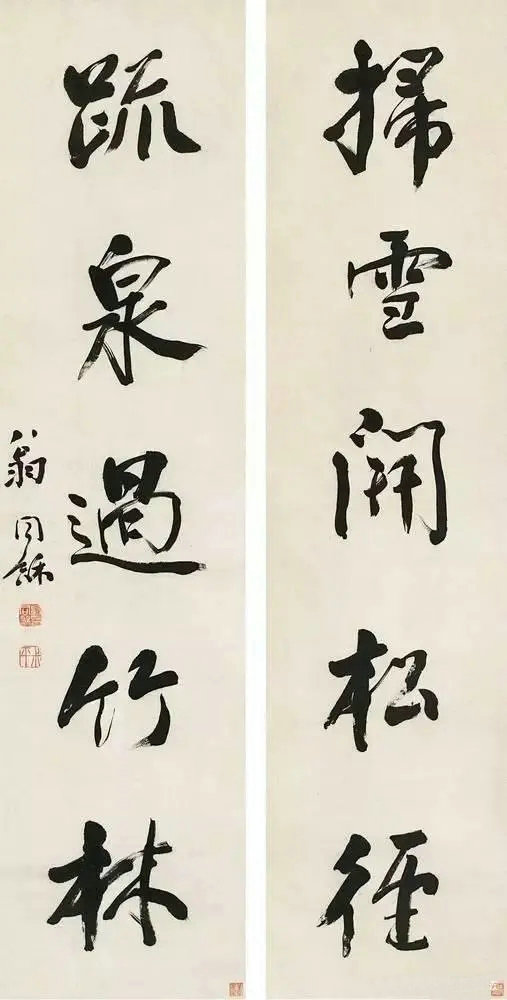 掃雪開松徑
疏泉過竹林
翁同龢